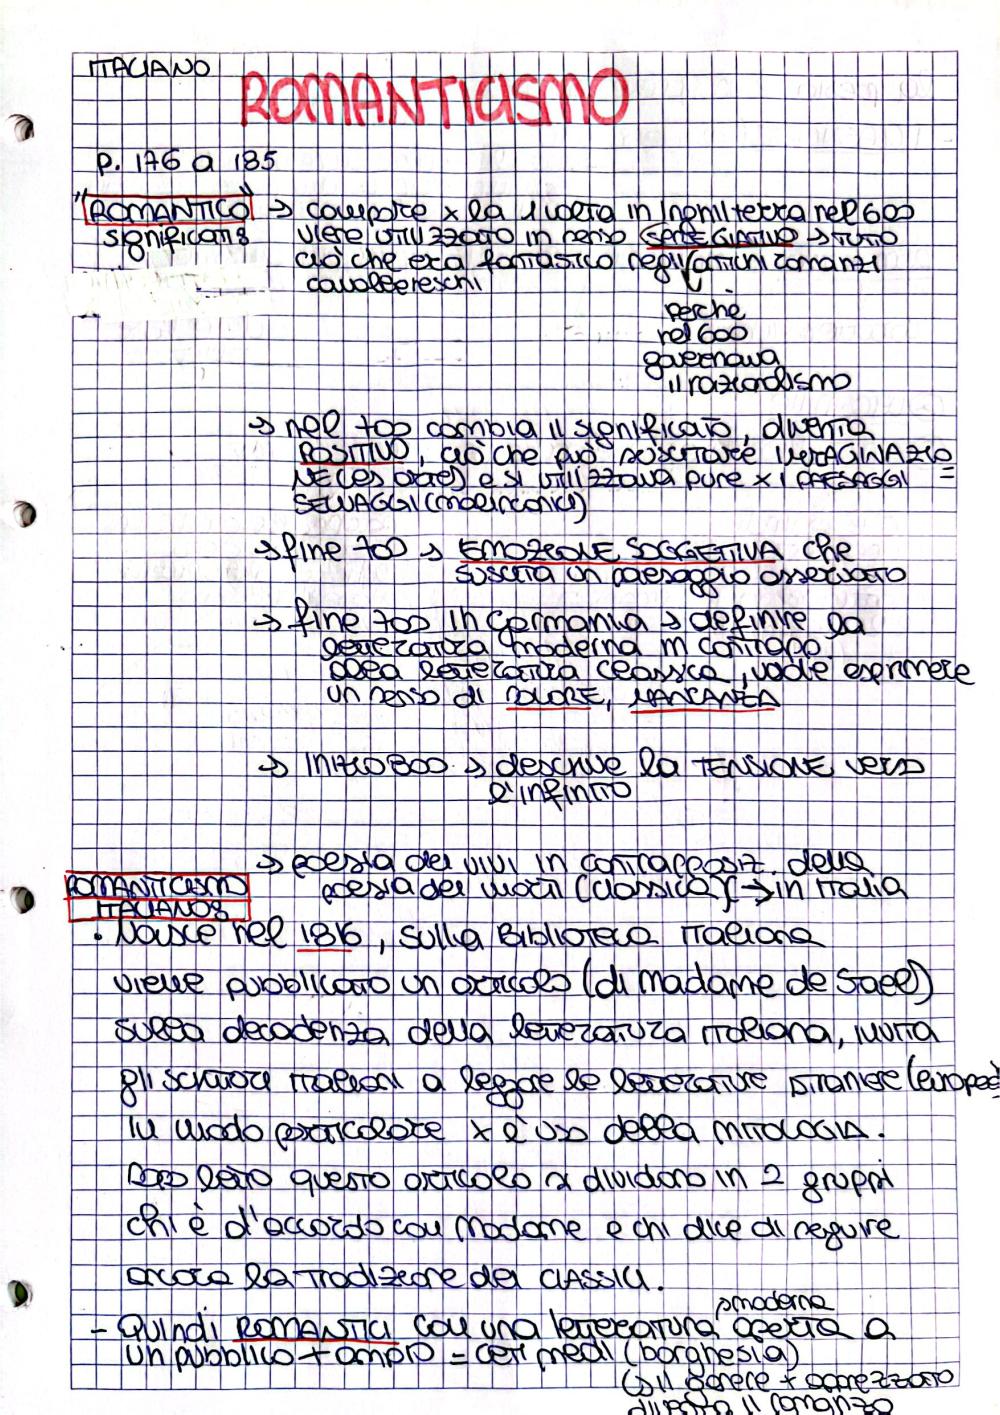 ITALIANO
ROMANTICISMO
p. 176 a 185
"ROMANTICO" → compare x la 1 volta in Inghilterra nel 600
significati:
viene UTILIZZATO in senso SPREGIATIVO → TUTTO
ciò che era fantastico negli antichi romanzi
cavallereschi
perchè
nel 600
governava
il razionalismo
→ nel 700 cambia il significato, diventa
POSITIVO, ciò che può suscitare IMMAGINAZIO
NE (es arte) e si UTILIZZAVA pure x i PAESAGGI =
SELVAGGI (malinconici)
→ fine 700 → EMOZIONE SOGGETTIVA che
suscita un paesaggio osservato
→ fine 700 in Germania → definire la
letteratura moderna in contrapp.
alla letteratura classica, vuole esprimere
un senso di DOLORE, MANCANZA
→ INIZIO 800 → descrive la TENSIONE verso
l'infinito
→ poesia dei vivi in contrapposiz. della
poesia dei morti (classica) → in Italia
ROMANTICISMO
ITALIANO:
• Nasce nel 1816, sulla Biblioteca Italiana
viene pubblicato un articolo (di Madame de Stael)
sulla decadenza della letteratura italiana, invita
gli scrittori italiani a leggere le letterature straniere (europee)
in modo particolare x l'uso della MITOLOGIA.
Dopo letto questo articolo si dividono in 2 gruppi
chi è d'accordo con Madame e chi dice di seguire
ancora la tradizione dei CLASSICI.
→ moderna
- Quindi ROMANTICI con una letteratura aperta a
un pubblico + ampio = ceti medi (borghesia)
↳ il genere + apprezzato
diventa il romanzo